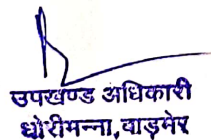 उपखण्ड अधिकारी
धोरीमन्ना,बाड़मेर